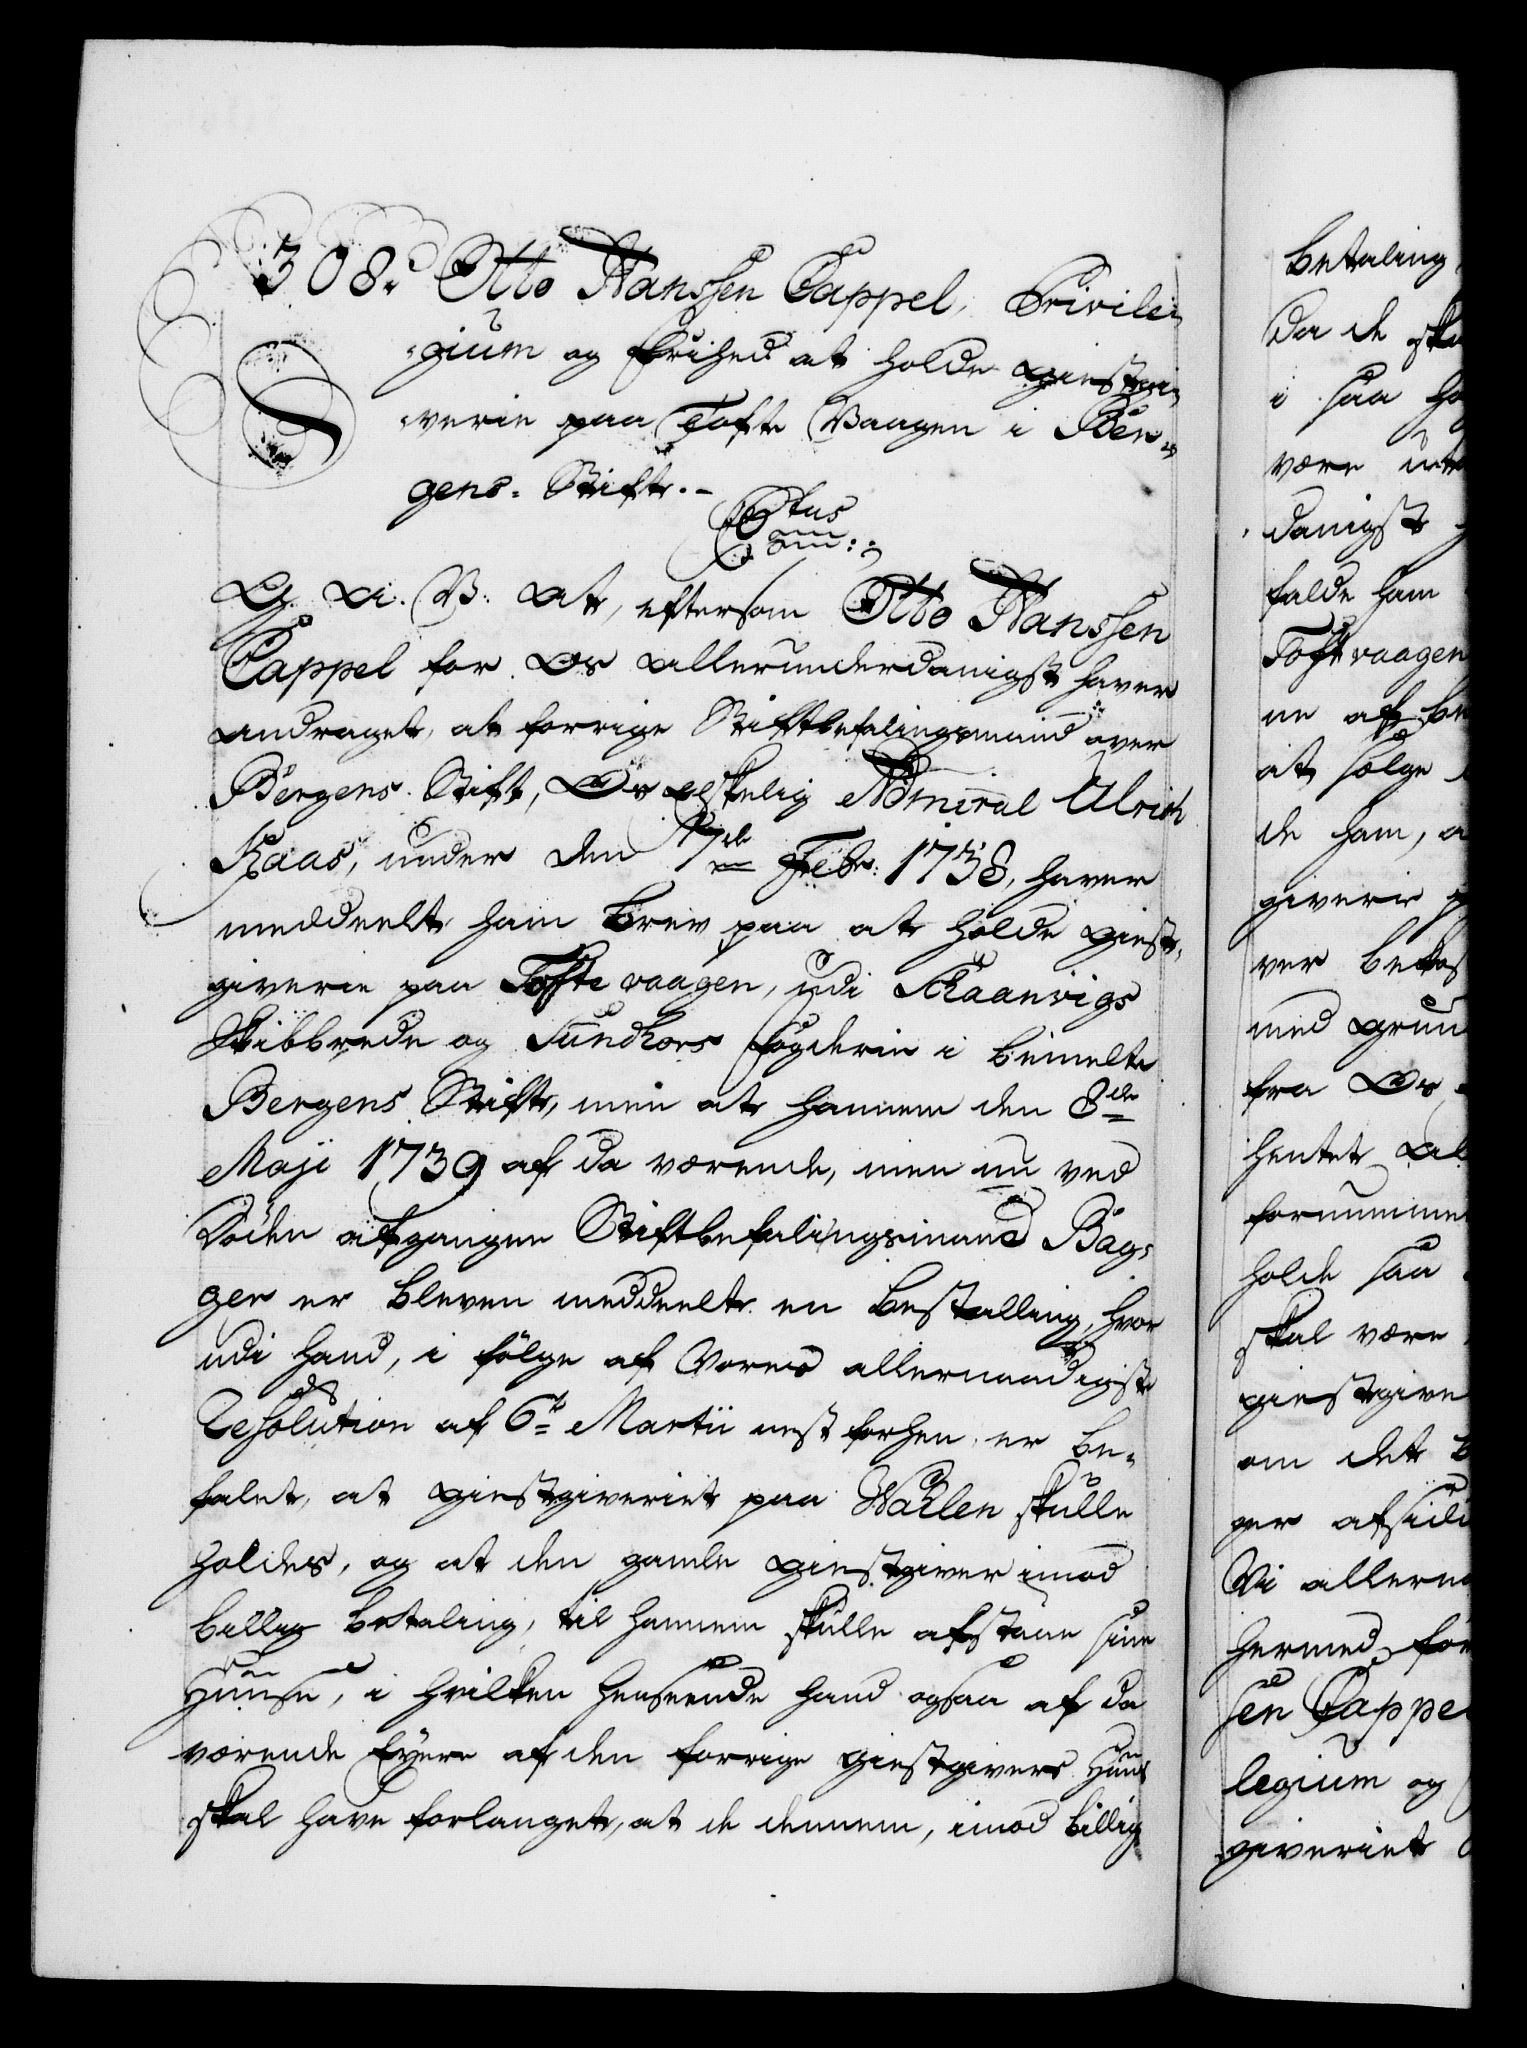 308. Otto Hanssen Cappel, Privile-
gium og frihed at holde giestgi-
verie paa Tofte Vaagen i Ber-
gens Stift.
Ctus
Om:
G. A. V. At, eftersom Otto Hanssen
Cappel for Os allerunderdanigst haver
andraget, at forrige Stiftbefalingsmand over
Bergens Stift, Os elskelig Admiral Ulrich
Kaas, under den 7de Febr: 1738, haver
meddeelt ham brev paa at holde giest-
giverie paa Toftevaagen, udi Skaanvigs
Skibbrede og Sundhors fogderie i bemelte
Bergens Stift, men at hannem den 8de
Maji 1739 af da værende, men nu ved
Døden afgangen Stiftbefalingsmand Bag-
ger er bleven meddeelt en bestalling, hvor
udi hand, i følge af Vores allernaadigste
Resolution af 6te Martii nest forhen, er be-
falet, at giestgiveriet paa Wahlen skulle
holdes, og at den gamle giestgiver imod
billig betaling, til hannem skulle afstaae sine
Huuse, i hvilken henseende hand ogsaa af da
værende Eyere af den forrige giestgivers Huus
skal have forlanget, at de dennem, imod billig
betaling,
da de
i saa
være
danigst
falde ham
Toftvaagen
ne af
at følge
de ham,
giverie
ver
med
fra Os
hentet
fornumme
holde saa
skal være
giestgive
om det
ger
Vi allern
hermed for
sen Cappe
legium og
giveriet